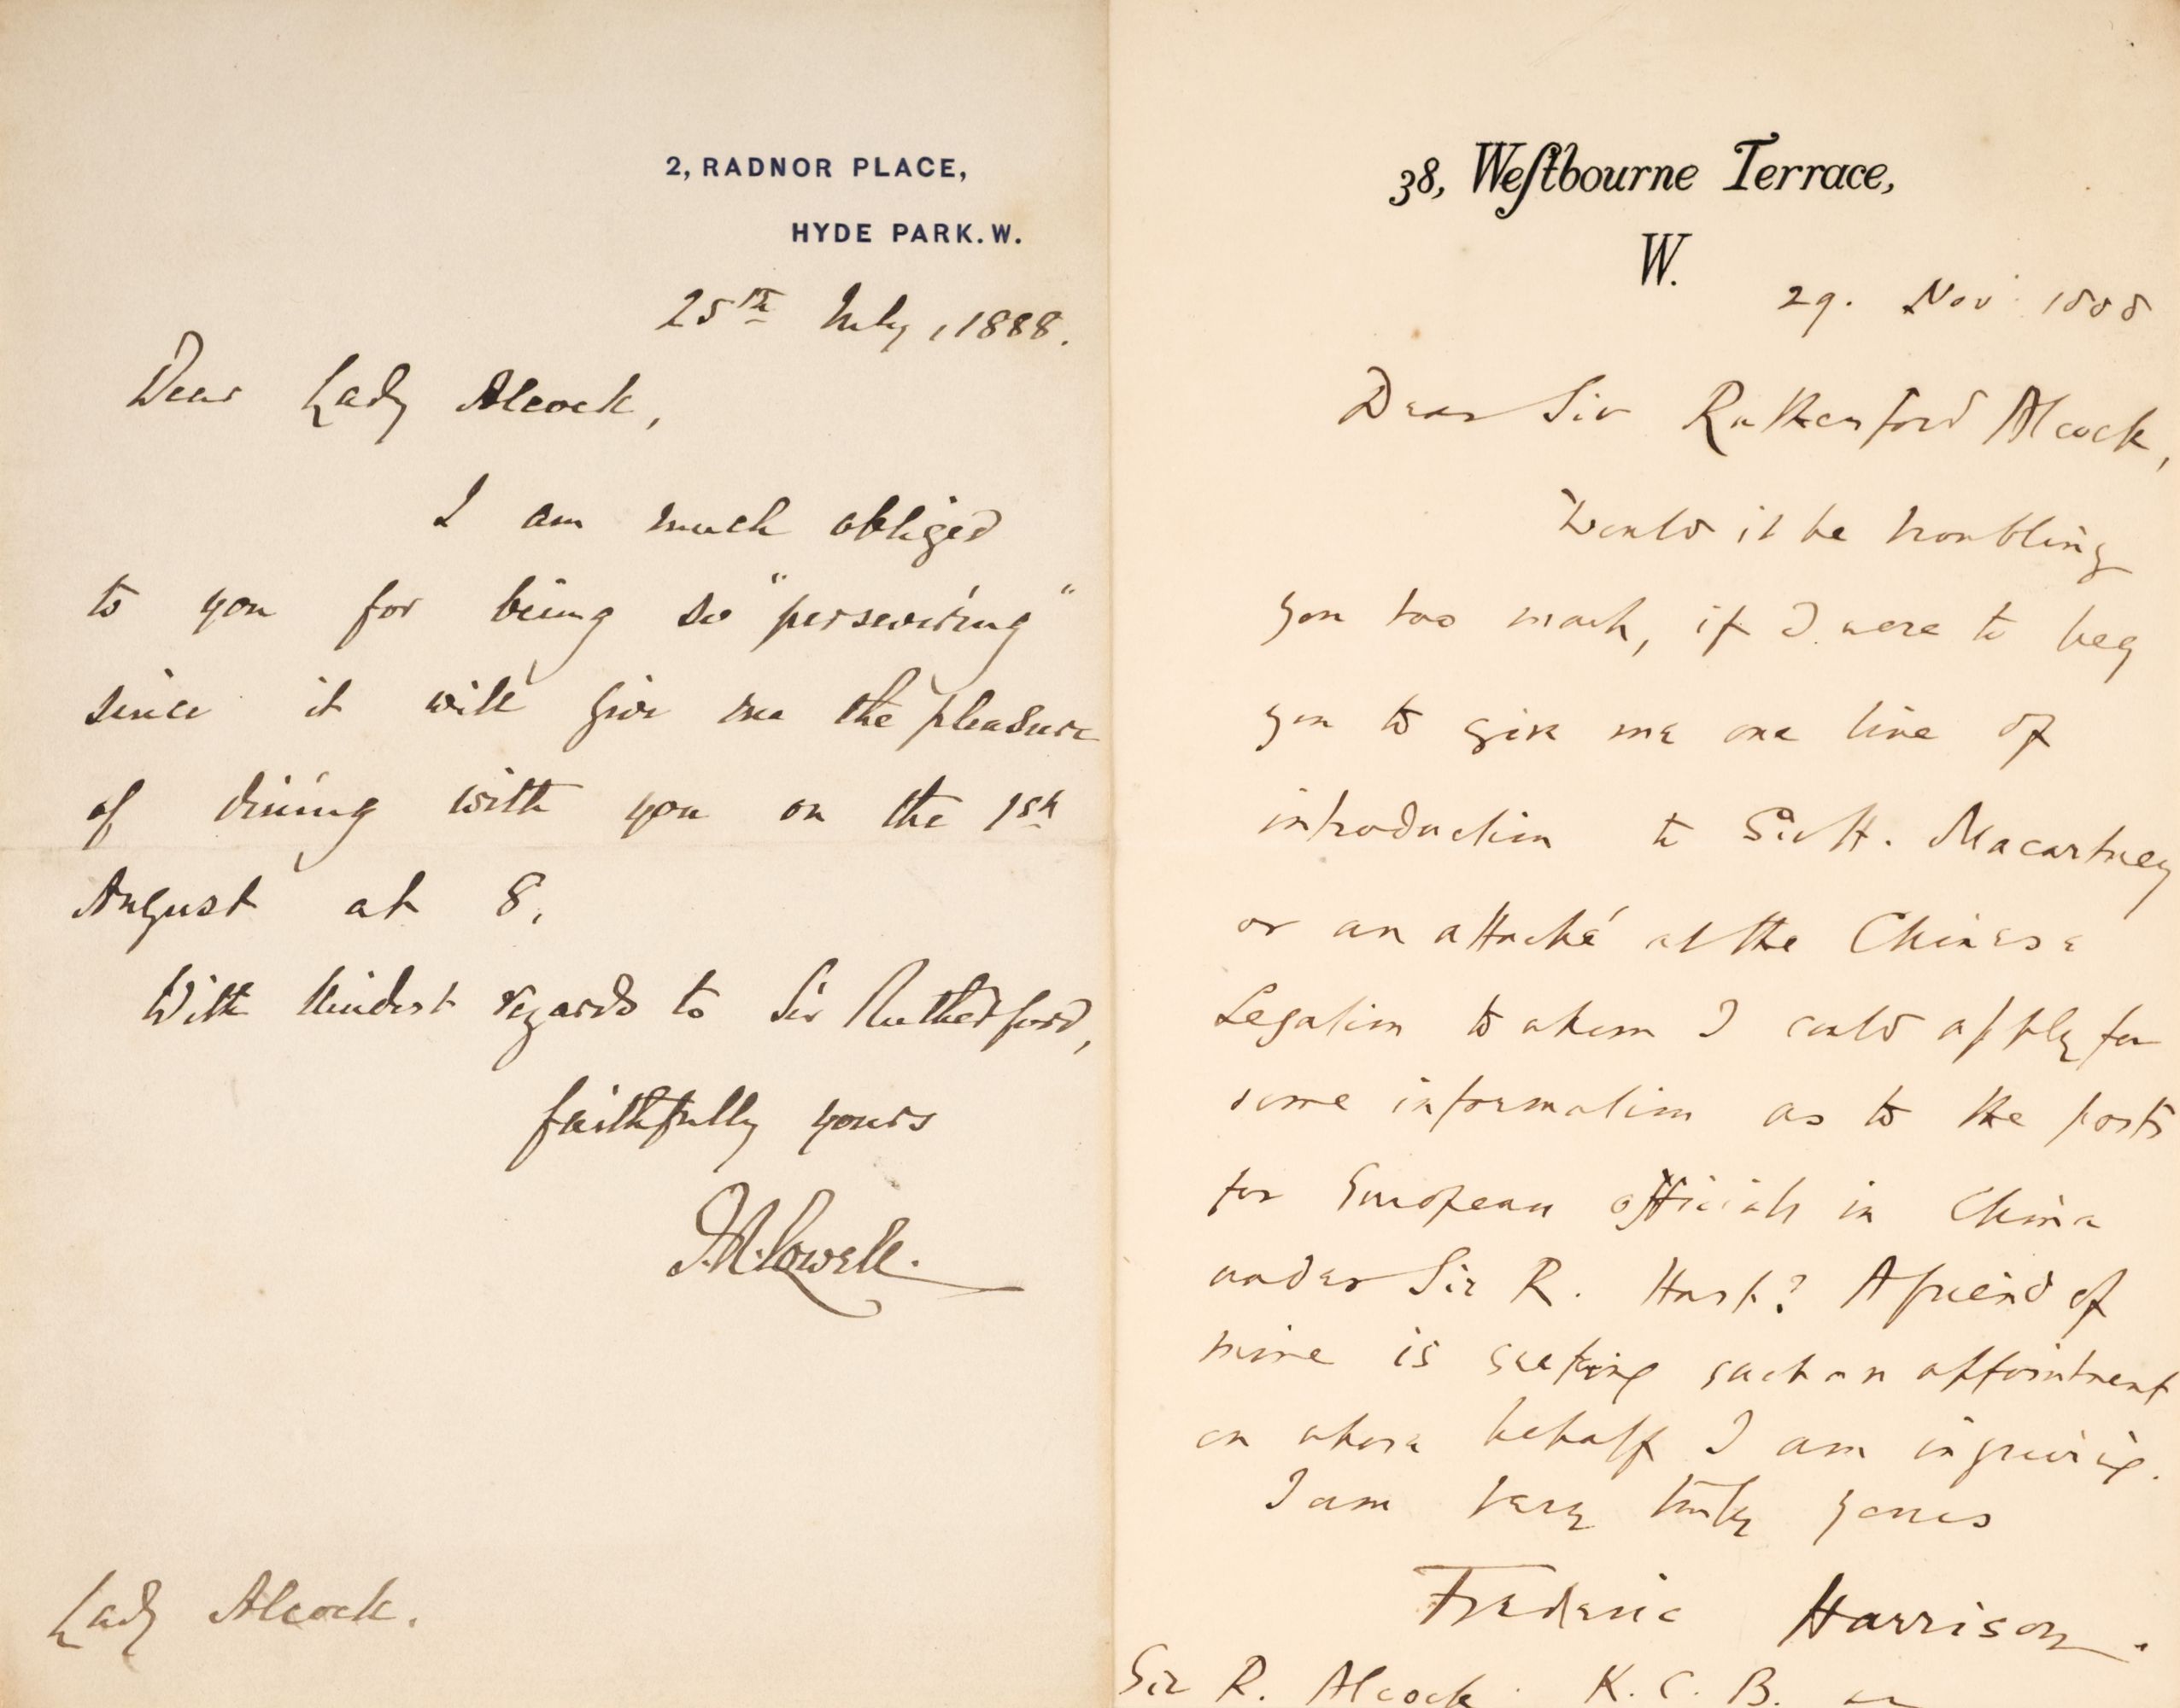 2, RADNOR PLACE,
HYDE PARK. W.
25th July, 1888.
Dear Lady Alcock,
I am much obliged
to you for being so "persevering"
since it will give me the pleasure
of dining with you on the 1st
August at 8.
With kindest regards to Sir Rutherford,
faithfully yours
J.R. Lowell.
Lady Alcock.
38, Westbourne Terrace,
W.
29. Nov 1888
Dear Sir Rutherford Alcock,
Would it be troubling
you too much, if I were to beg
you to give me one line of
introduction to Sir H. Macartney
or an attaché at the Chinese
Legation to whom I could apply for
some information as to the posts
for European officials in China
under Sir R. Hart? A friend of
mine is seeking such an appointment
on whose behalf I am inquiring.
I am very truly yours
Frederic Harrison.
Sir R. Alcock. K. C. B.